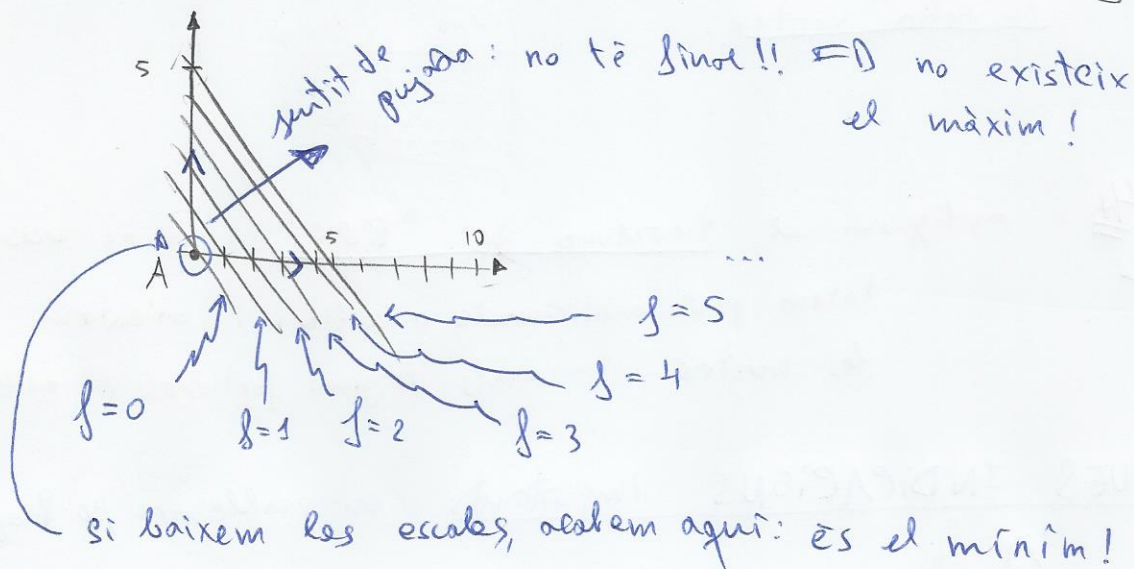 sentit de
pujada: no té final!! => no existeix
el màxim!
5
A
5
10
...
f=5
f=4
f=0
f=1
f=2
f=3
si baixem les escales, acabem aquí: és el mínim!